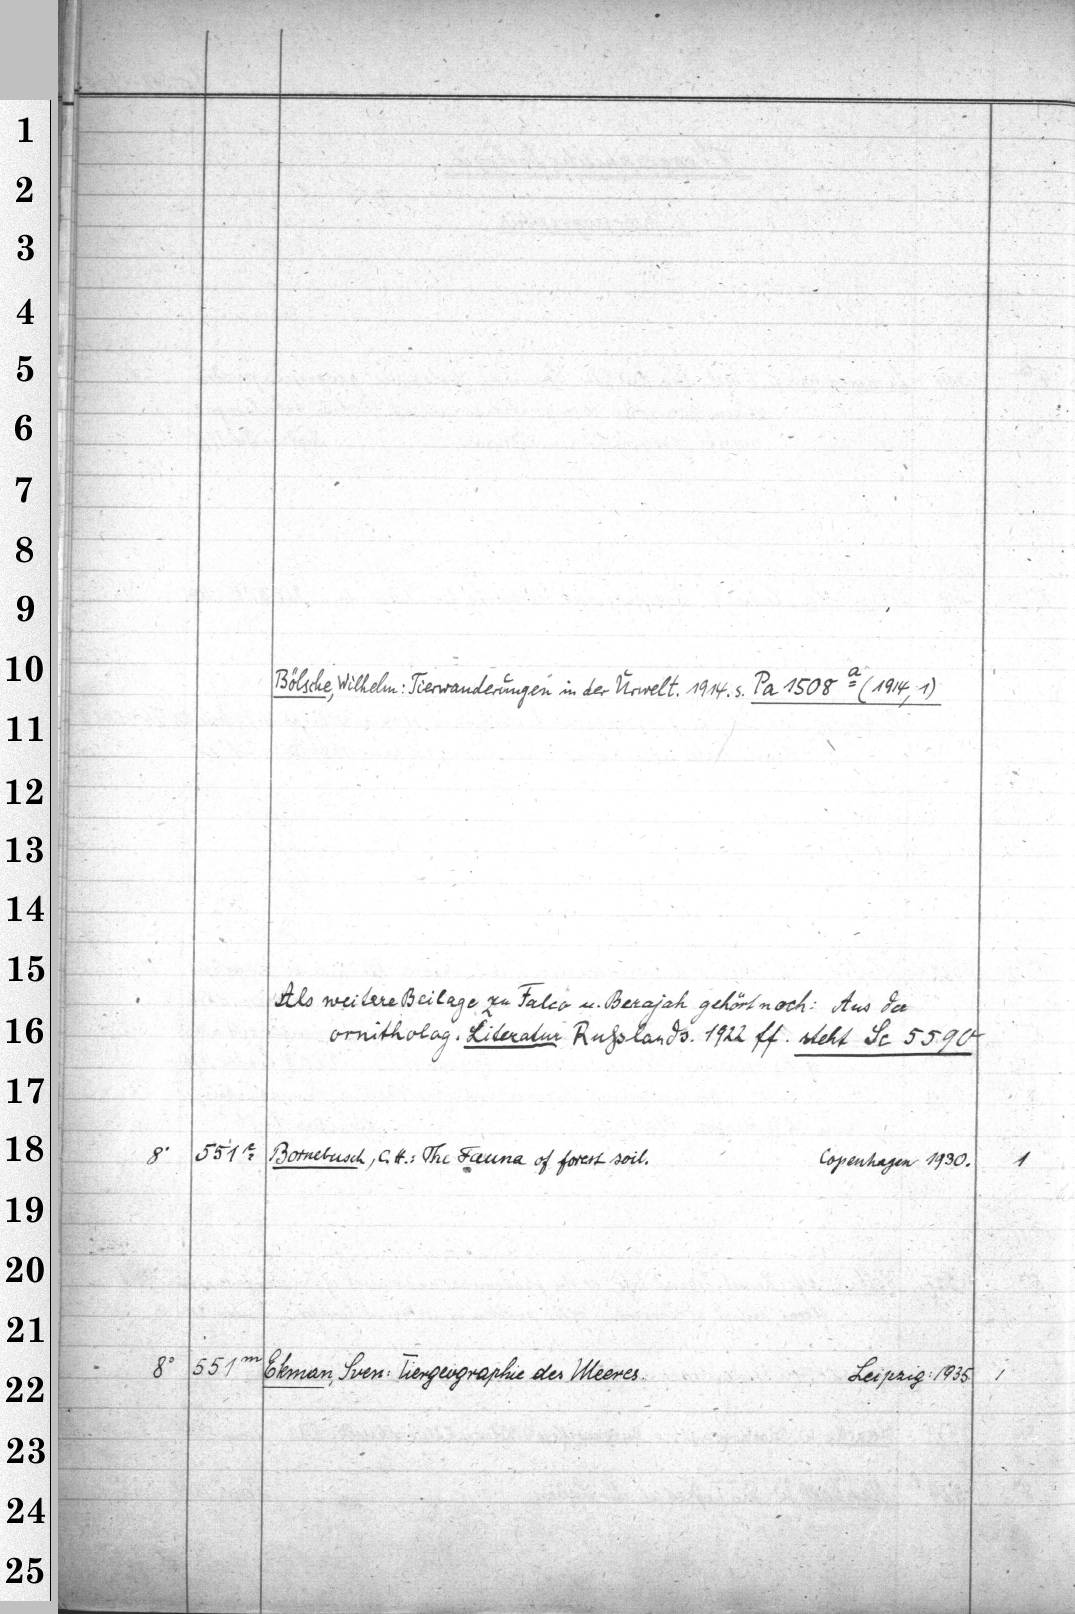 1
2
3
4
5
6
7
8
9
10
Bölsche, Wilhelm: Tierwanderungen in der Urwelt. 1914. s. Pa 1508 a (1914, 1)
11
12
13
14
15
Als weitere Beilage zu Falco u. Berajah gehört noch: Aus der
16
ornitholog. Literatur Rußlands. 1922 ff. steht Sc 5590
17
18
8° 551 Bornebusch, C. H.: The Fauna of forest soil. Copenhagen 1930. 1
19
20
21
8° 551 m Ekman, Sven: Tiergeographie des Meeres. Leipzig: 1935 1
22
23
24
25